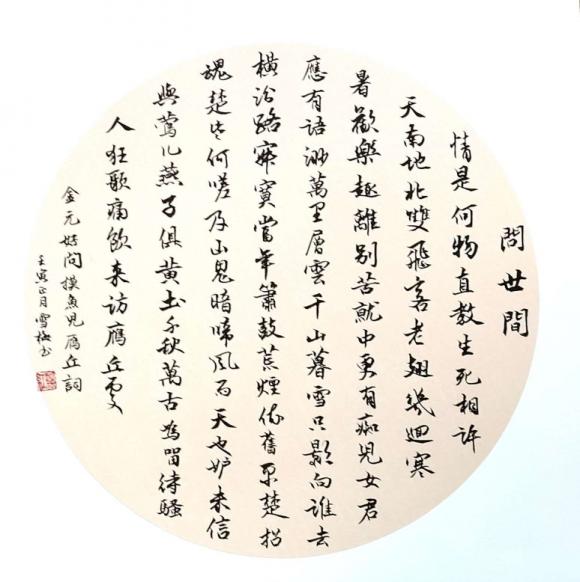 問世間
情是何物直教生死相許
天南地北雙飛客老翅幾迴寒
暑歡樂趣離別苦就中更有痴兒女君
應有語渺萬里層雲千山暮雪只影向誰去
橫汾路寂寞當年簫鼓荒煙依舊平楚招
魂楚些何嗟及山鬼暗啼風雨天也妒未信
與鶯儿燕子俱黃土千秋萬古為留待騷
人狂歌痛飲來访雁丘處
金元好問摸魚兒雁丘詞
壬寅正月雪梅书